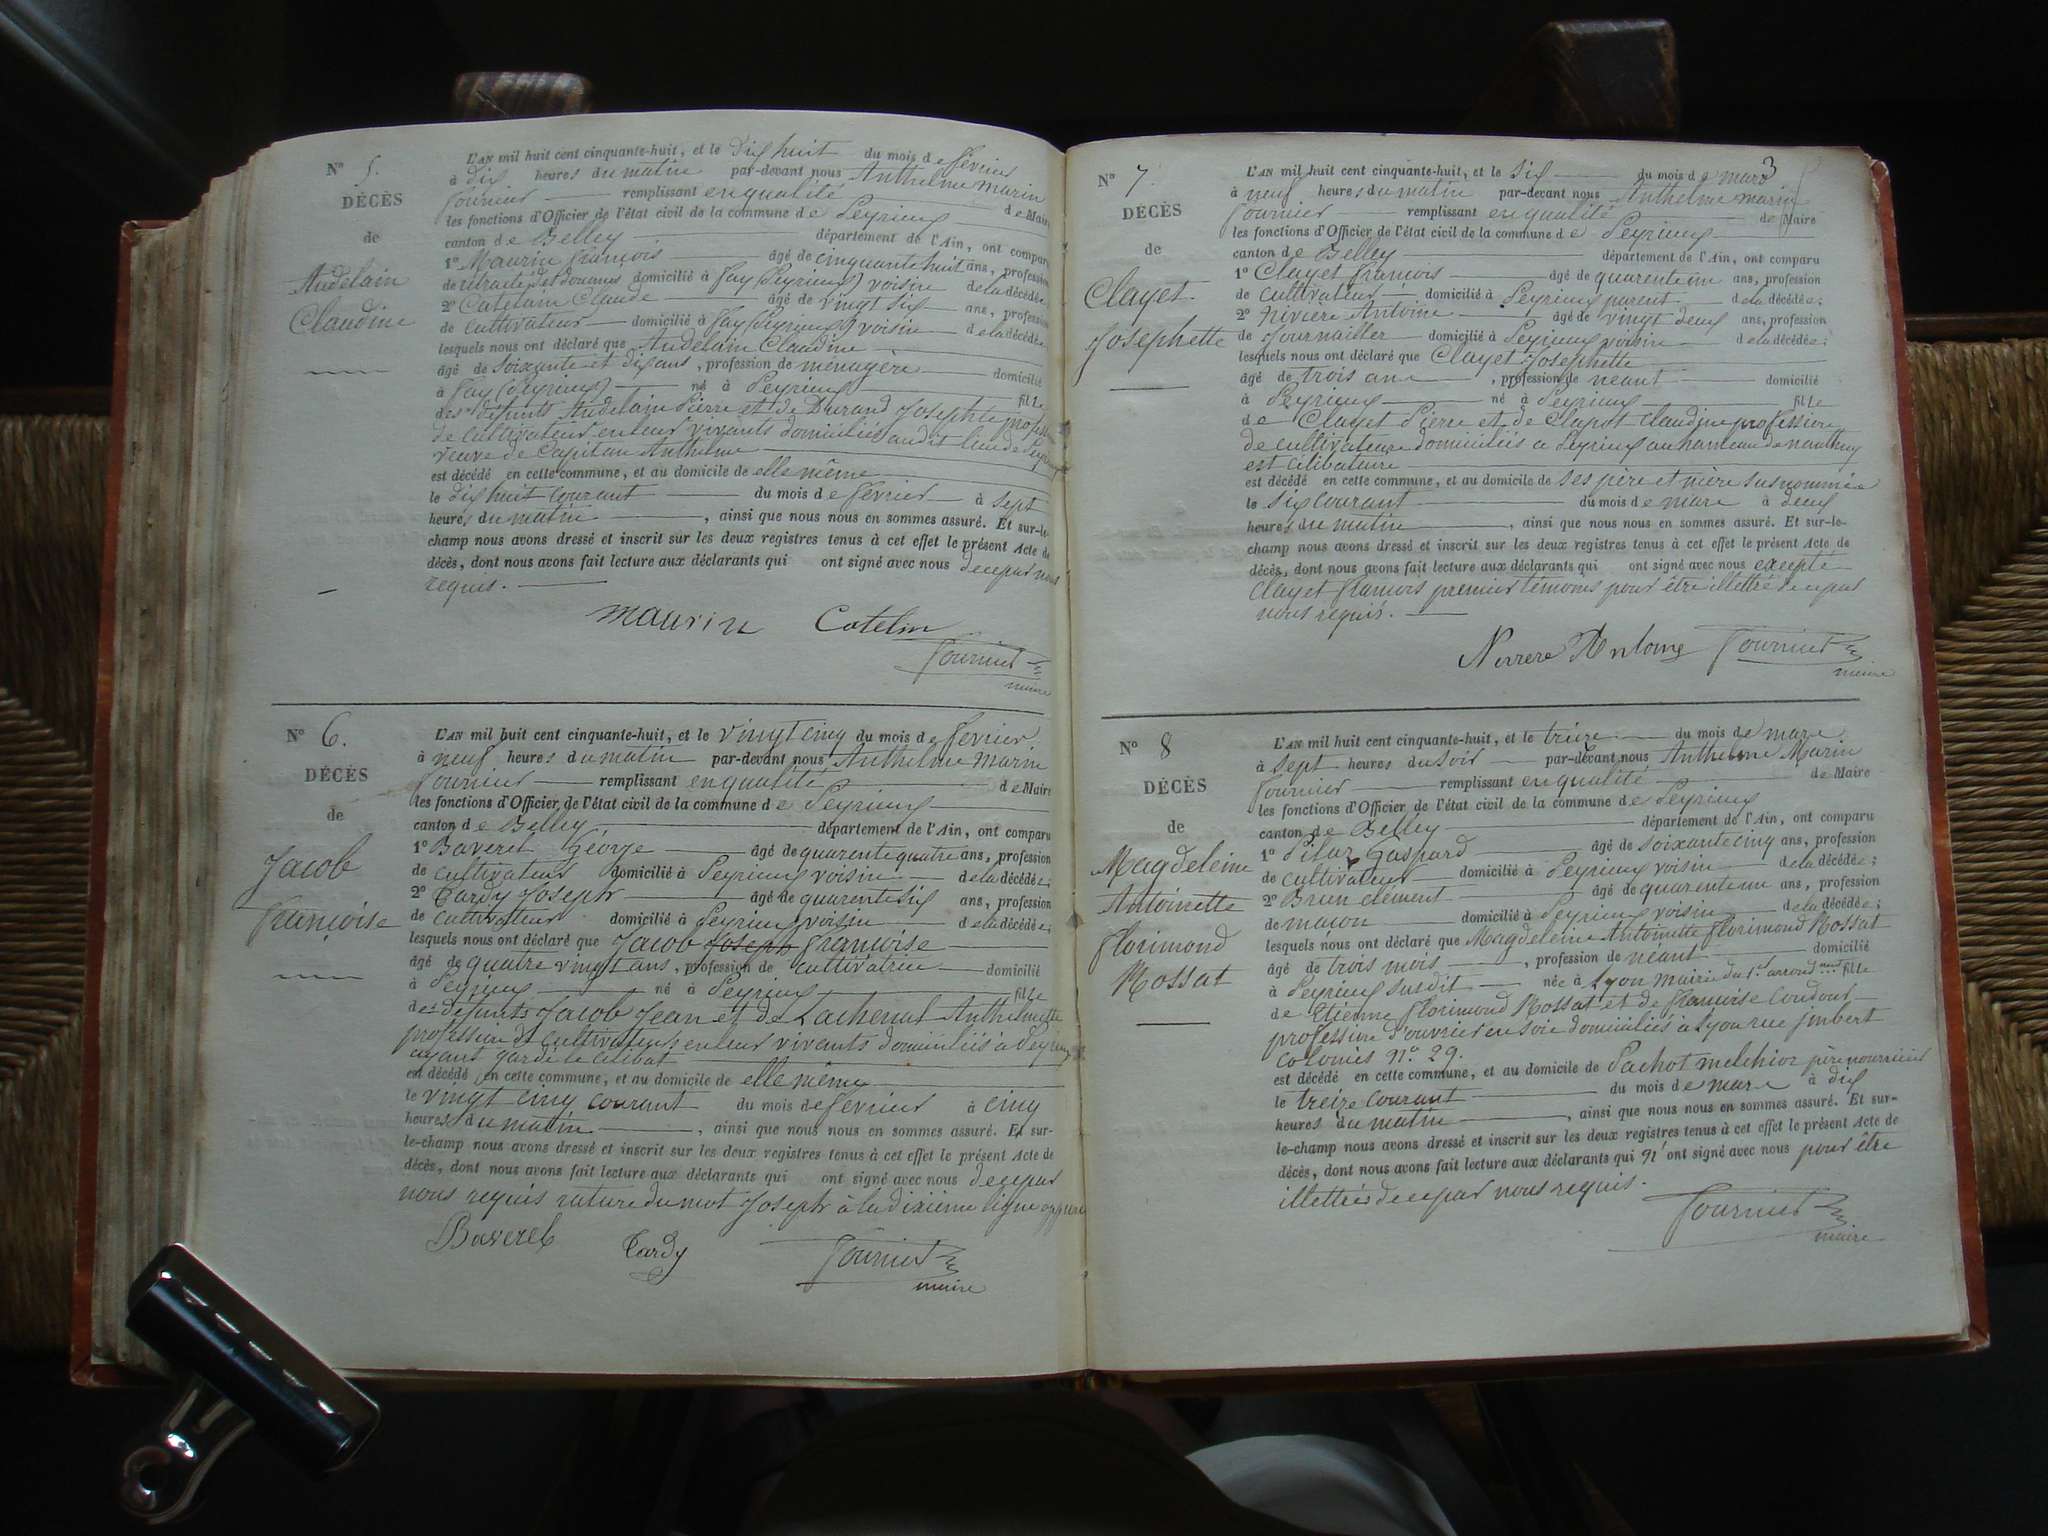 N° 5.
DÉCÈS
de
Audelain
Claudine
L'AN mil huit cent cinquante-huit, et le dix huit du mois de février
à dix heures du matin par-devant nous Anthelme Marin
fournier remplissant en qualité de Maire
les fonctions d'Officier de l'état civil de la commune de Peyrieux
canton de Belley département de l'Ain, ont comparu
1° Maurin françois âgé de cinquante huit ans, profession
de retraité des douanes domicilié à fay (Peyrieux) voisin de la décédée;
2° Catelain Claude âgé de vingt six ans, profession
de cultivateur domicilié à fay (Peyrieux) voisin de la décédée
lesquels nous ont déclaré que Audelain Claudine
âgé de soixante et dix ans, profession de ménagère domicilié
à fay (Peyrieux) né à Peyrieux fille
des défunts Audelain Pierre et de Durand Josephte
de cultivateur en leur vivants domiciliés audit lieu de
veuve de Capitan Anthelme
est décédé en cette commune, et au domicile de elle même
le dix huit courant du mois de février à sept
heures du matin, ainsi que nous nous en sommes assuré. Et sur-le-
champ nous avons dressé et inscrit sur les deux registres tenus à cet effet le présent Acte de
décès, dont nous avons fait lecture aux déclarants qui ont signé avec nous de ce par nous
requis.
maurin Catelin
fournier
maire
N° 6.
DÉCÈS
de
Jacob
françoise
L'AN mil huit cent cinquante-huit, et le vingt cinq du mois de février
à neuf heures du matin par-devant nous Anthelme Marin
fournier remplissant en qualité de Maire
les fonctions d'Officier de l'état civil de la commune de Peyrieux
canton de Belley département de l'Ain, ont comparu
1° Baverel George âgé de quarente quatre ans, profession
de cultivateur domicilié à Peyrieux voisin de la décédée;
2° Tardy Joseph âgé de quarente six ans, profession
de cultivateur domicilié à Peyrieux voisin de la décédée;
lesquels nous ont déclaré que Jacob Joseph françoise
âgé de quatre vingt ans, profession de cultivatrice domicilié
à Peyrieux né à Peyrieux fille
des défunts Jacob Jean et de Lachenal Anthelmette
profession de cultivateurs en leur vivants domiciliés à Peyrieux
ayant gardé le célibat
est décédé en cette commune, et au domicile de elle même
le vingt cinq courant du mois de février à cinq
heures du matin, ainsi que nous nous en sommes assuré. Et sur-
le-champ nous avons dressé et inscrit sur les deux registres tenus à cet effet le présent Acte de
décès, dont nous avons fait lecture aux déclarants qui ont signé avec nous de ce par
nous requis rature du mot Joseph à la dixième ligne
Baverel Tardy fournier
maire
3
N° 7.
DÉCÈS
de
Clayet
Josephette
L'AN mil huit cent cinquante-huit, et le six du mois de mars
à neuf heures du matin par-devant nous Anthelme marin
fournier remplissant en qualité de Maire
les fonctions d'Officier de l'état civil de la commune de Peyrieux
canton de Belley département de l'Ain, ont comparu
1° Clayet françois âgé de quarente un ans, profession
de cultivateur domicilié à Peyrieux parent de la décédée;
2° Nivière Antoine âgé de vingt deux ans, profession
de Journailler domicilié à Peyrieux voisin de la décédée;
lesquels nous ont déclaré que Clayet Josephette
âgé de trois ans, profession de néant domicilié
à Peyrieux né à Peyrieux fille
de Clayet Pierre et de Clapot Claudine profession
de cultivateurs domiciliés à Peyrieux au hameau de nanthuy
est célibataire
est décédé en cette commune, et au domicile de ses père et mère susnommée
le six courant du mois de mars à deux
heures du matin, ainsi que nous nous en sommes assuré. Et sur-le-
champ nous avons dressé et inscrit sur les deux registres tenus à cet effet le présent Acte de
décès, dont nous avons fait lecture aux déclarants qui ont signé avec nous excepté
Clayet françois premier témoins pour être illettré de ce par
nous requis.
Nivrere Antoine fournier
maire
N° 8
DÉCÈS
de
Magdeleine
Antoinette
florimond
Rossat
L'AN mil huit cent cinquante-huit, et le treize du mois de mars
à sept heures du soir par-devant nous Anthelme Marin
fournier remplissant en qualité de Maire
les fonctions d'Officier de l'état civil de la commune de Peyrieux
canton de Belley département de l'Ain, ont comparu
1° Pilaz Gaspard âgé de soixante cinq ans, profession
de cultivateur domicilié à Peyrieux voisin de la décédée;
2° Brun clément âgé de quarente un ans, profession
de maçon domicilié à Peyrieux voisin de la décédée;
lesquels nous ont déclaré que Magdeleine Antoinette florimond Rossat
âgé de trois mois, profession de néant domicilié
à Peyrieux susdit née à Lyon mairie du 1er arrond.ment fille
de Etienne florimond Rossat et de françoise Coudout
profession d'ouvrier en soie domiciliés à Lyon rue Imbert
colomès n° 29.
est décédé en cette commune, et au domicile de Pachot melchior père nourricier
le treize courant du mois de mars à dix
heures du matin, ainsi que nous nous en sommes assuré. Et sur-
le-champ nous avons dressé et inscrit sur les deux registres tenus à cet effet le présent Acte de
décès, dont nous avons fait lecture aux déclarants qui n'ont signé avec nous pour être
illettrés de ce par nous requis.
fournier
maire